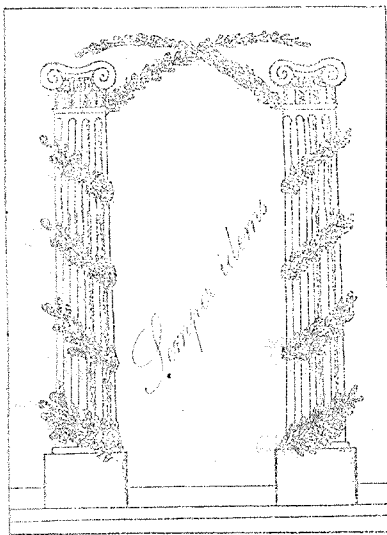 Semper idem